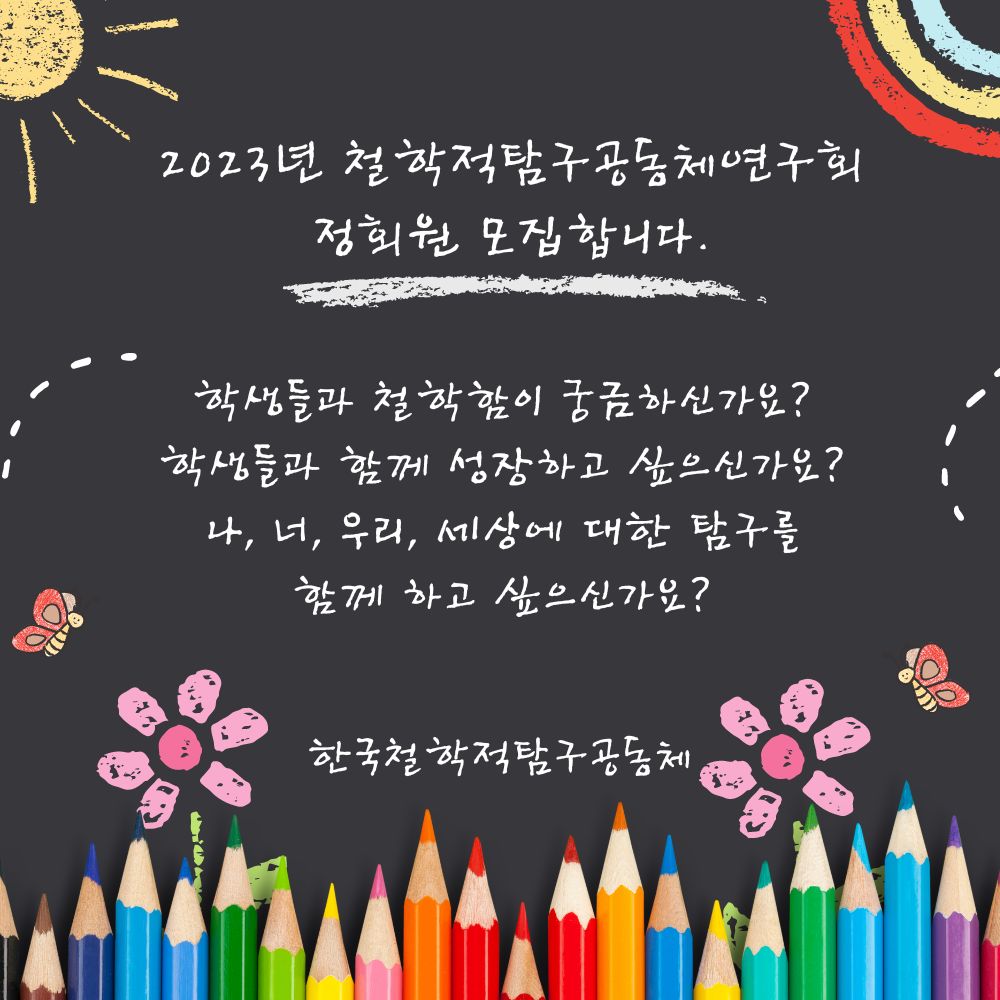 2023년 철학적탐구공동체연구회
정회원 모집합니다.
학생들과 철학함이 궁금하신가요?
학생들과 함께 성장하고 싶으신가요?
나, 너, 우리, 세상에 대한 탐구를
함께 하고 싶으신가요?
한국철학적탐구공동체